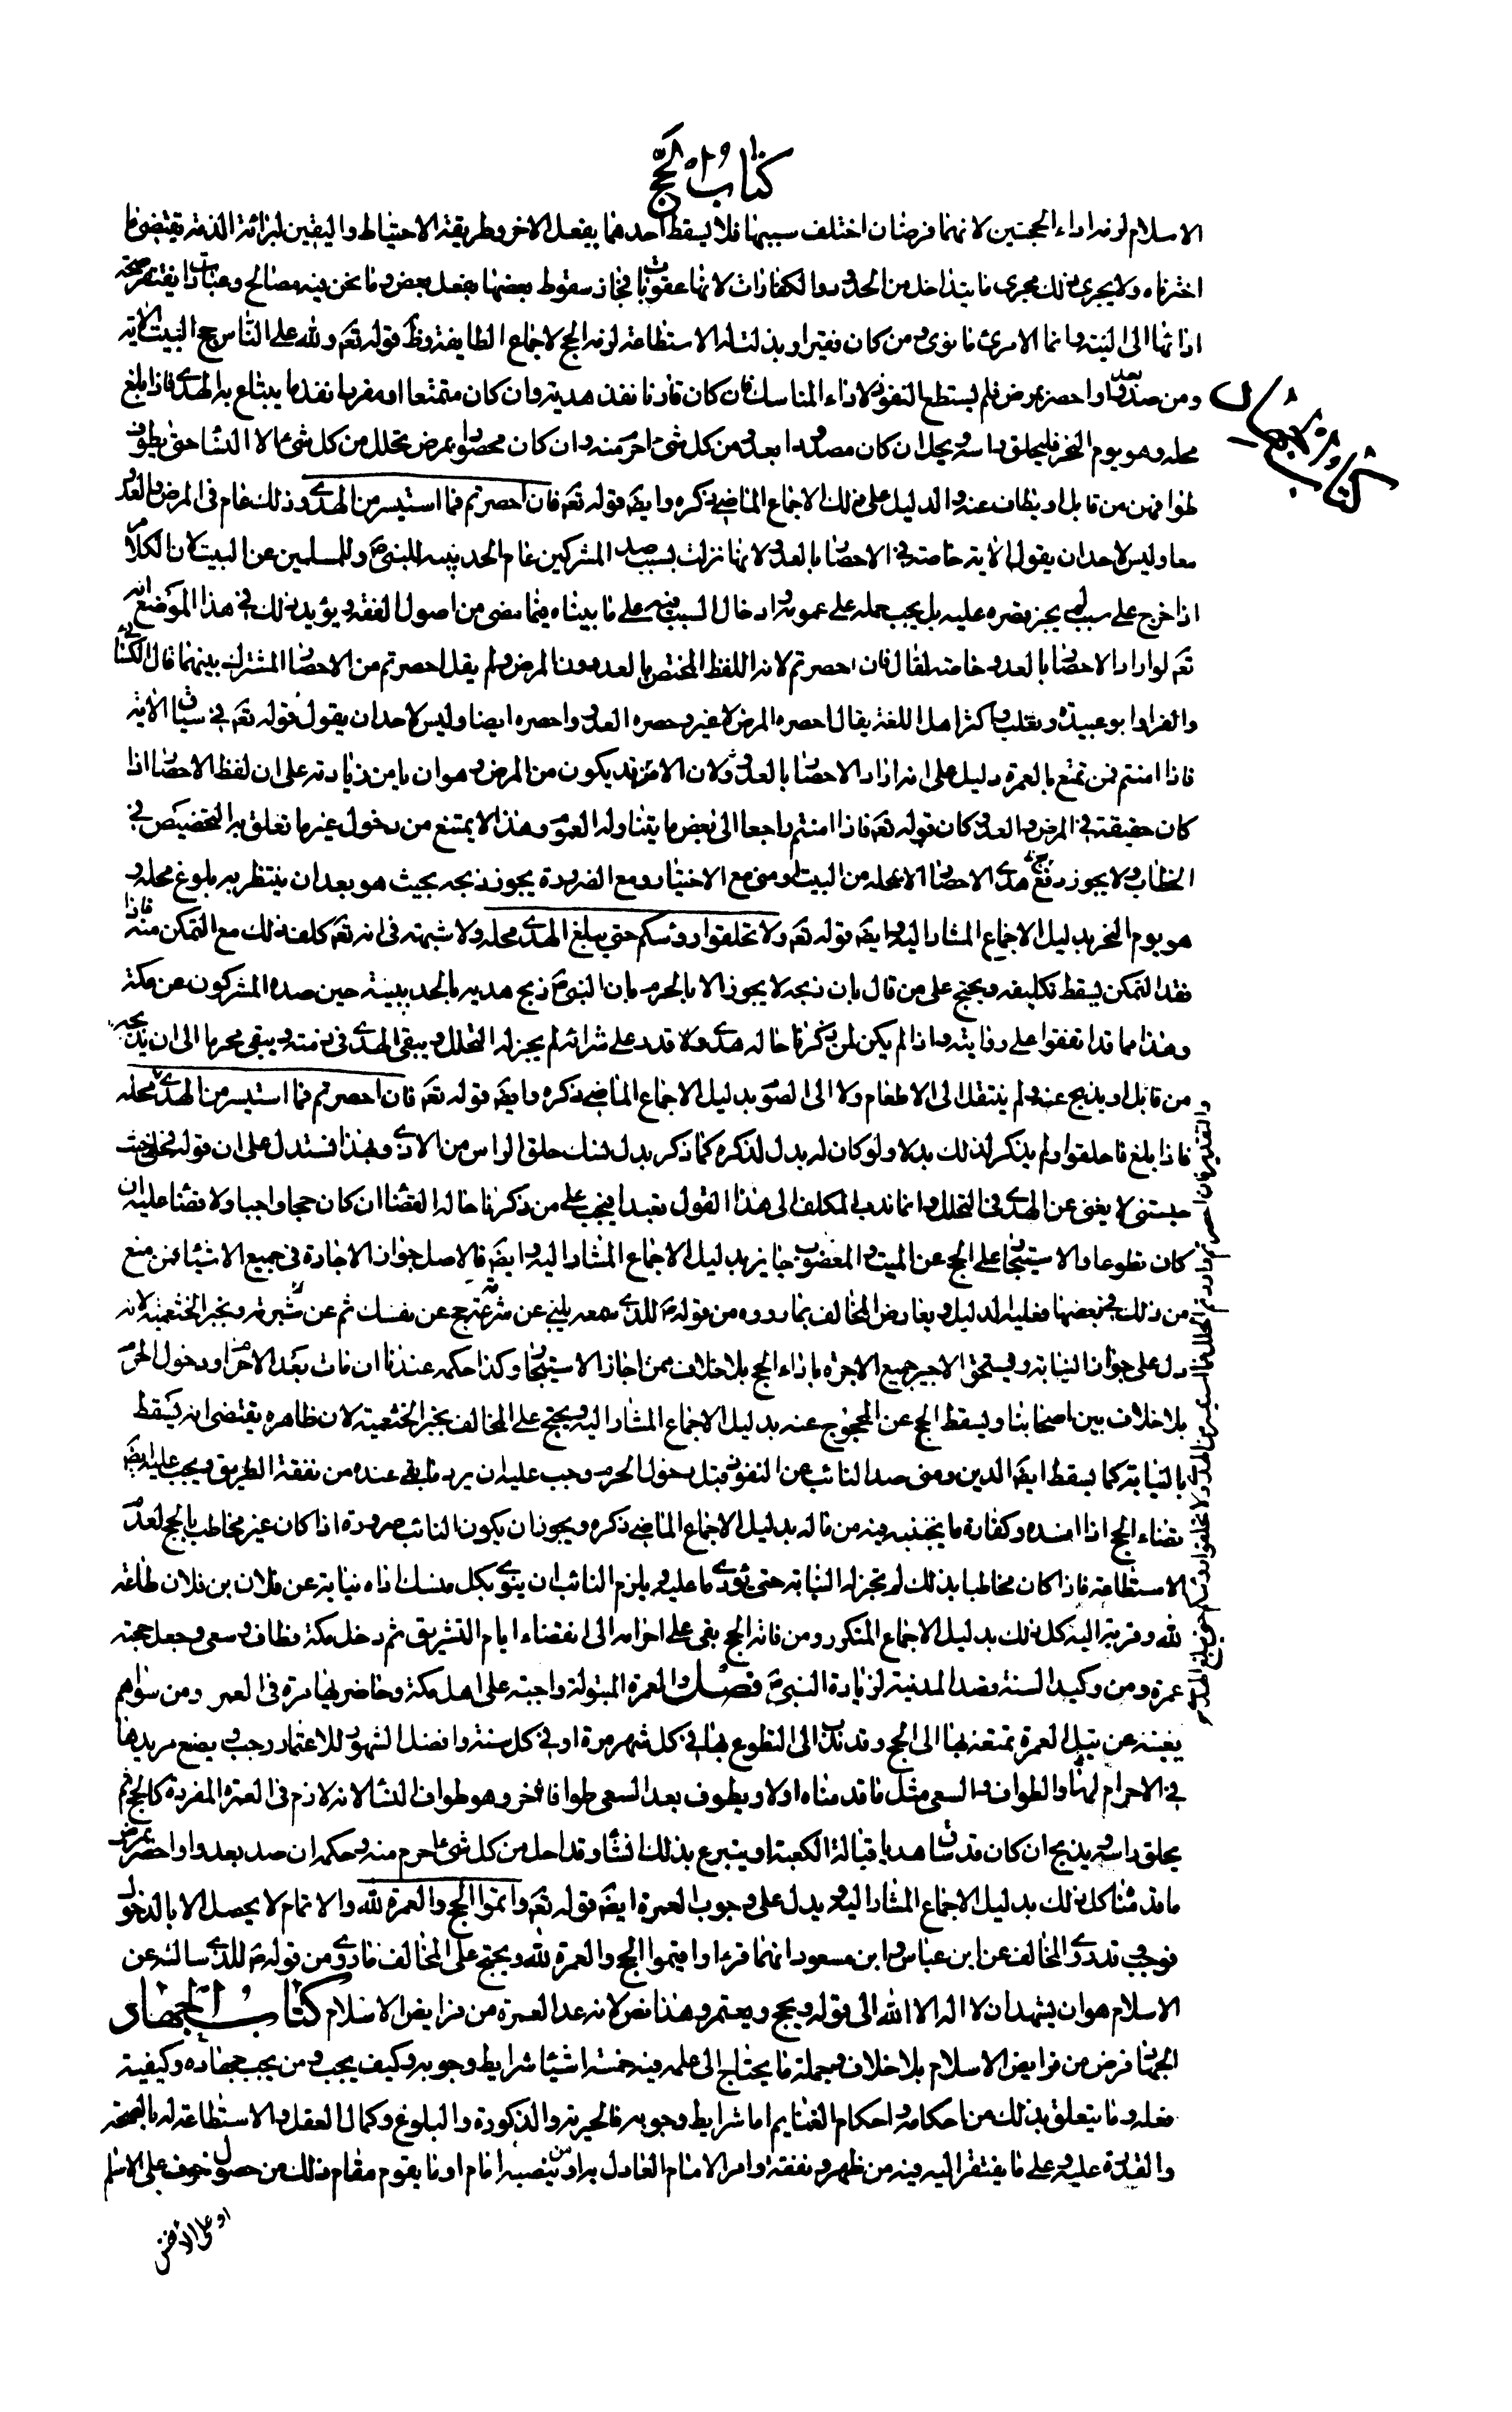 كتاب الحج
الاسلام لزمه اداء الحجتين لانهما فرضان اختلف سببهما فلا يسقط احدهما بفعل الاخر وطريقة الاحتياط واليقين لبرائة الذمة يقتضى ما
اخترناه ولا يجرى ذلك مجرى ما يتداخل من الحدود والكفارات لانها عقوبات فجاز سقوط بعضها بفعل بعض وما نحن فيه مصالح وعبادات يفتقر صحة
ادائها الى النية وانما لامرئ ما نوى ومن كان فقيرا وبذلت له الاستطاعة لزمه الحج لاجماع الطايفة وظ قوله تعَ ولله على الناس حج البيت الاية
ومن صد بعدو او احصر بمرض فلم يستطع النفوذ لاداء المناسك فان كان قارنا نفذ هديه وان كان متمتعا او مفردا نفذ ما يبتاع به الهدى فاذا بلغ
محله وهو يوم النحر فليحلق راسه ويحل ان كان مصدودا بعدو من كل شئ احرم منه وان كان محصورا بمرض تحلل من كل شئ الا النسا حتى يطوف
طوافهن من قابل او يطاف عنه والدليل على ذلك الاجماع الماضى ذكره وايضَ قوله تعَ فان احصرتم فما استيسر من الهدى وذلك عام فى المرض والعدو
معا وليس لاحد ان يقول الاية خاصة فى الاحصار بالعدو لانها نزلت بسبب صد المشركين عام الحديبيه للنبىَ وللمسلمين عن البيت لان الكلام
اذا خرج على سبب لم يجز قصره عليه بل يجب حمله على عمومه وادخال السبب فيه على ما بيناه فيما مضى من اصول الفقه ويؤيد ذلك فى هذا الموضع انه
تعَ لو اراد الاحصار بالعدو خاصة لقال فان حصرتم لانه اللفظ المختص بالعدو دون المرض ولم يقل احصرتم من الاحصار المشترك بينهما قال الكسائى
والفرا وابو عبيدة وثعلب واكثر اهل اللغة يقال احصره المرض لا غير وحصره العدو واحصره ايضا وليس لاحد ان يقول فقوله تعَ فى سياق الاية
فاذا امنتم فمن تمتع بالعمرة دليل على انه اراد الاحصار بالعدو لان الامن قد يكون من المرض وهو ان يامن زيادته على ان لفظ الاحصار اذا
كان حقيقة فى المرض والعدو كان قوله تعَ فاذا امنتم راجعا الى بعض ما يتناوله العموم وهذا لا يمتنع من دخول غير ما تعلق به التخصيص فى
الخطاب ولا يجوز ذبح هدى الاحصار الا محله من البيت او منى مع الاختيار ومع الضرورة يجوز ذبحه بحيث هو بعد ان ينتظر به بلوغ محله و
هو يوم النحر بدليل الاجماع المشار اليه وايضَ قوله تعَ ولا تحلقوا روسكم حتى يبلغ الهدى محله ولا شبهة فى انه تعَ كلف ذلك مع التمكن منه فاذا
فقد التمكن يسقط تكليفه ويحتج على من قال بان ذبحه لا يجوز الا بالحرم بان النبىَ ذبح هديه بالحديبية حين صده المشركون عن مكة
وهذا مما قد اتفقوا على روايته واذا لم يكن لمن ذكرنا حاله هدى ولا قدر على شرائه لم يجز له التحلل ويبقى الهدى فى ذمته ويبقى محرما الى ان يذبحه
من قابل او يذبح عنه ولم ينتقل الى الاطعام ولا الى الصوم بدليل الاجماع الماضى ذكره وايضَ قوله تعَ فان احصرتم فما استيسر من الهدى محله
فاذا بلغ فاحلقوا ولم يذكر لذلك بدلا ولو كان له بدل لذكره كما ذكر بدل نسك حلق الراس من الاذى وبهذا نستدل على ان قوله فحلنى حيث
حبستنى لا يغنى عن الهدى فى التحلل وانما ندب المكلف الى هذا القول تعبدا ويجب على من ذكرنا حاله القضا ان كان حجا واجبا ولا قضا عليه ان
كان تطوعا والاستيجار على الحج عن الميت والمعضوب جايز بدليل الاجماع المشار اليه وايضَ فالاصل جواز الاجارة فى جميع الاشياء فمن منع
من ذلك فى بعضها فعليه الدليل ويعارض المخالف بما رووه من قولهَ للذى سمعه يلبى عن شبرمة حج عن نفسك ثم عن شبرمة وبخبر الخثعمية لانه
دل على جواز النيابة ويستحق الاجير جميع الاجرة باداء الحج بلا خلاف ممن اجاز الاستيجار وكذا حكمه عندنا ان مات بعد الاحرام ودخول الحرم
بلا خلاف بين اصحابنا ويسقط الحج عن المحجوج عنه بدليل الاجماع المشار اليه ويحتج على المخالف بخبر الخثعمية لان ظاهره يقتضى انه يسقط
بالنيابة كما يسقط ايضَ الدين ومتى صد النائب عن النفوذ قبل دخول الحرم وجب عليه ان يرد ما بقى عنده من نفقة الطريق ويجب عليه ايضَ
قضاء الحج اذا افسده وكفارة ما يجتنبه فيه من ماله بدليل الاجماع الماضى ذكره ويجوز ان يكون النائب صرورة اذا كان غير مخاطب بالحج لعدم
الاستطاعة فاذا كان مخاطبا بذلك لم تجز له النيابة حتى يؤدى ما عليه ويلزم النائب ان ينوى بكل منسك اداه نيابة عن فلان بن فلان طاعة
لله وقربة اليه كل ذلك بدليل الاجماع المتكرر ومن فاته الحج بقى على احرامه الى انقضاء ايام التشريق ثم دخل مكة وطاف وسعى وجعل حجته
عمرة ومن وكيد السنة قصد المدينة لزيارة النبىَ فصل والعمرة المبتولة واجبة على اهل مكة وحاضريها مرة فى العمر ومن سواهم
يغنيه عن بتل العمرة تمتعه بها الى الحج وقد ندب الى التطوع بها فى كل شهر مرة او فى كل سنة وافضل الشهور للاعتمار رجب ويصنع مريدها
فى الاحرام لها والطواف والسعى مثل ما قدمناه اولا ويطوف بعد السعى طوافا اخر وهو طواف النسا لانه لازم فى العمرة المفردة كالحج ثم
يحلق راسه ويذبح ان كان قد ساق هديا قبالة الكعبة او يتبرع بذلك ان شا وقد احل من كل شئ احرم منه وحكمه ان صد بعدو او احصر بمرض
ما قدمنا كل ذلك بدليل الاجماع المشار اليه ويدل على وجوب العمرة ايضَ قوله تعَ واتموا الحج والعمرة لله والاتمام لا يحصل الا بالدخول
فوجب وقد روى المخالف عن ابن عباس وابن مسعود انهما قرءا واقيموا الحج والعمرة لله ويحتج على المخالف بما روى من قولهَ للذى ساله عن
الاسلام هو ان يشهد ان لا اله الا الله الى قوله ويحج ويعتمر وهذا نص لانه عد العمرة من فرايض الاسلام كتاب الجهاد
الجهاد فرض من فرايض الاسلام بلا خلاف وجملة ما يحتاج الى علمه فيه خمسة اشيا شرايط وجوبه وكيف يجب ومن يجب جهاده وكيفية
فعله وما يتعلق بذلك من احكامه واحكام الغنايم اما شرايط وجوبه فالحرية والذكورة والبلوغ وكمال العقل والاستطاعة له بالصحة
والقدرة عليه وعلى ما يفتقر اليه فيه من ظهر ونفقة وامر الامام العادل به او من ينصبه امام او ما يقوم مقام ذلك من حصول خوف على الاسلام
او على الانفس
كتاب الجهاد
والتقدير فان احصرتم واردتم التحلل فما استيسر من الهدى ولا تحلقوا رؤسكم حتى يبلغ الهدى